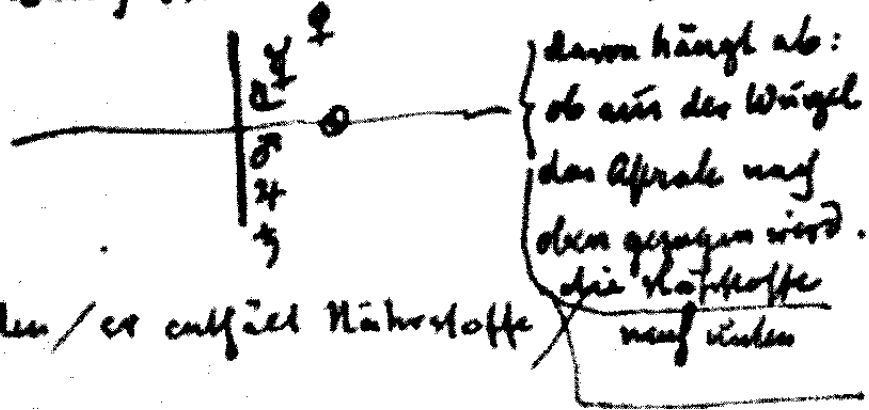 ♀
☿
☾
☉
♂
♃
♄
davon hängt ab:
ob aus der Wurzel
das Astrale nach
oben gezogen wird.
die Nährstoffe
nach unten
den / er enthält Nährstoffe